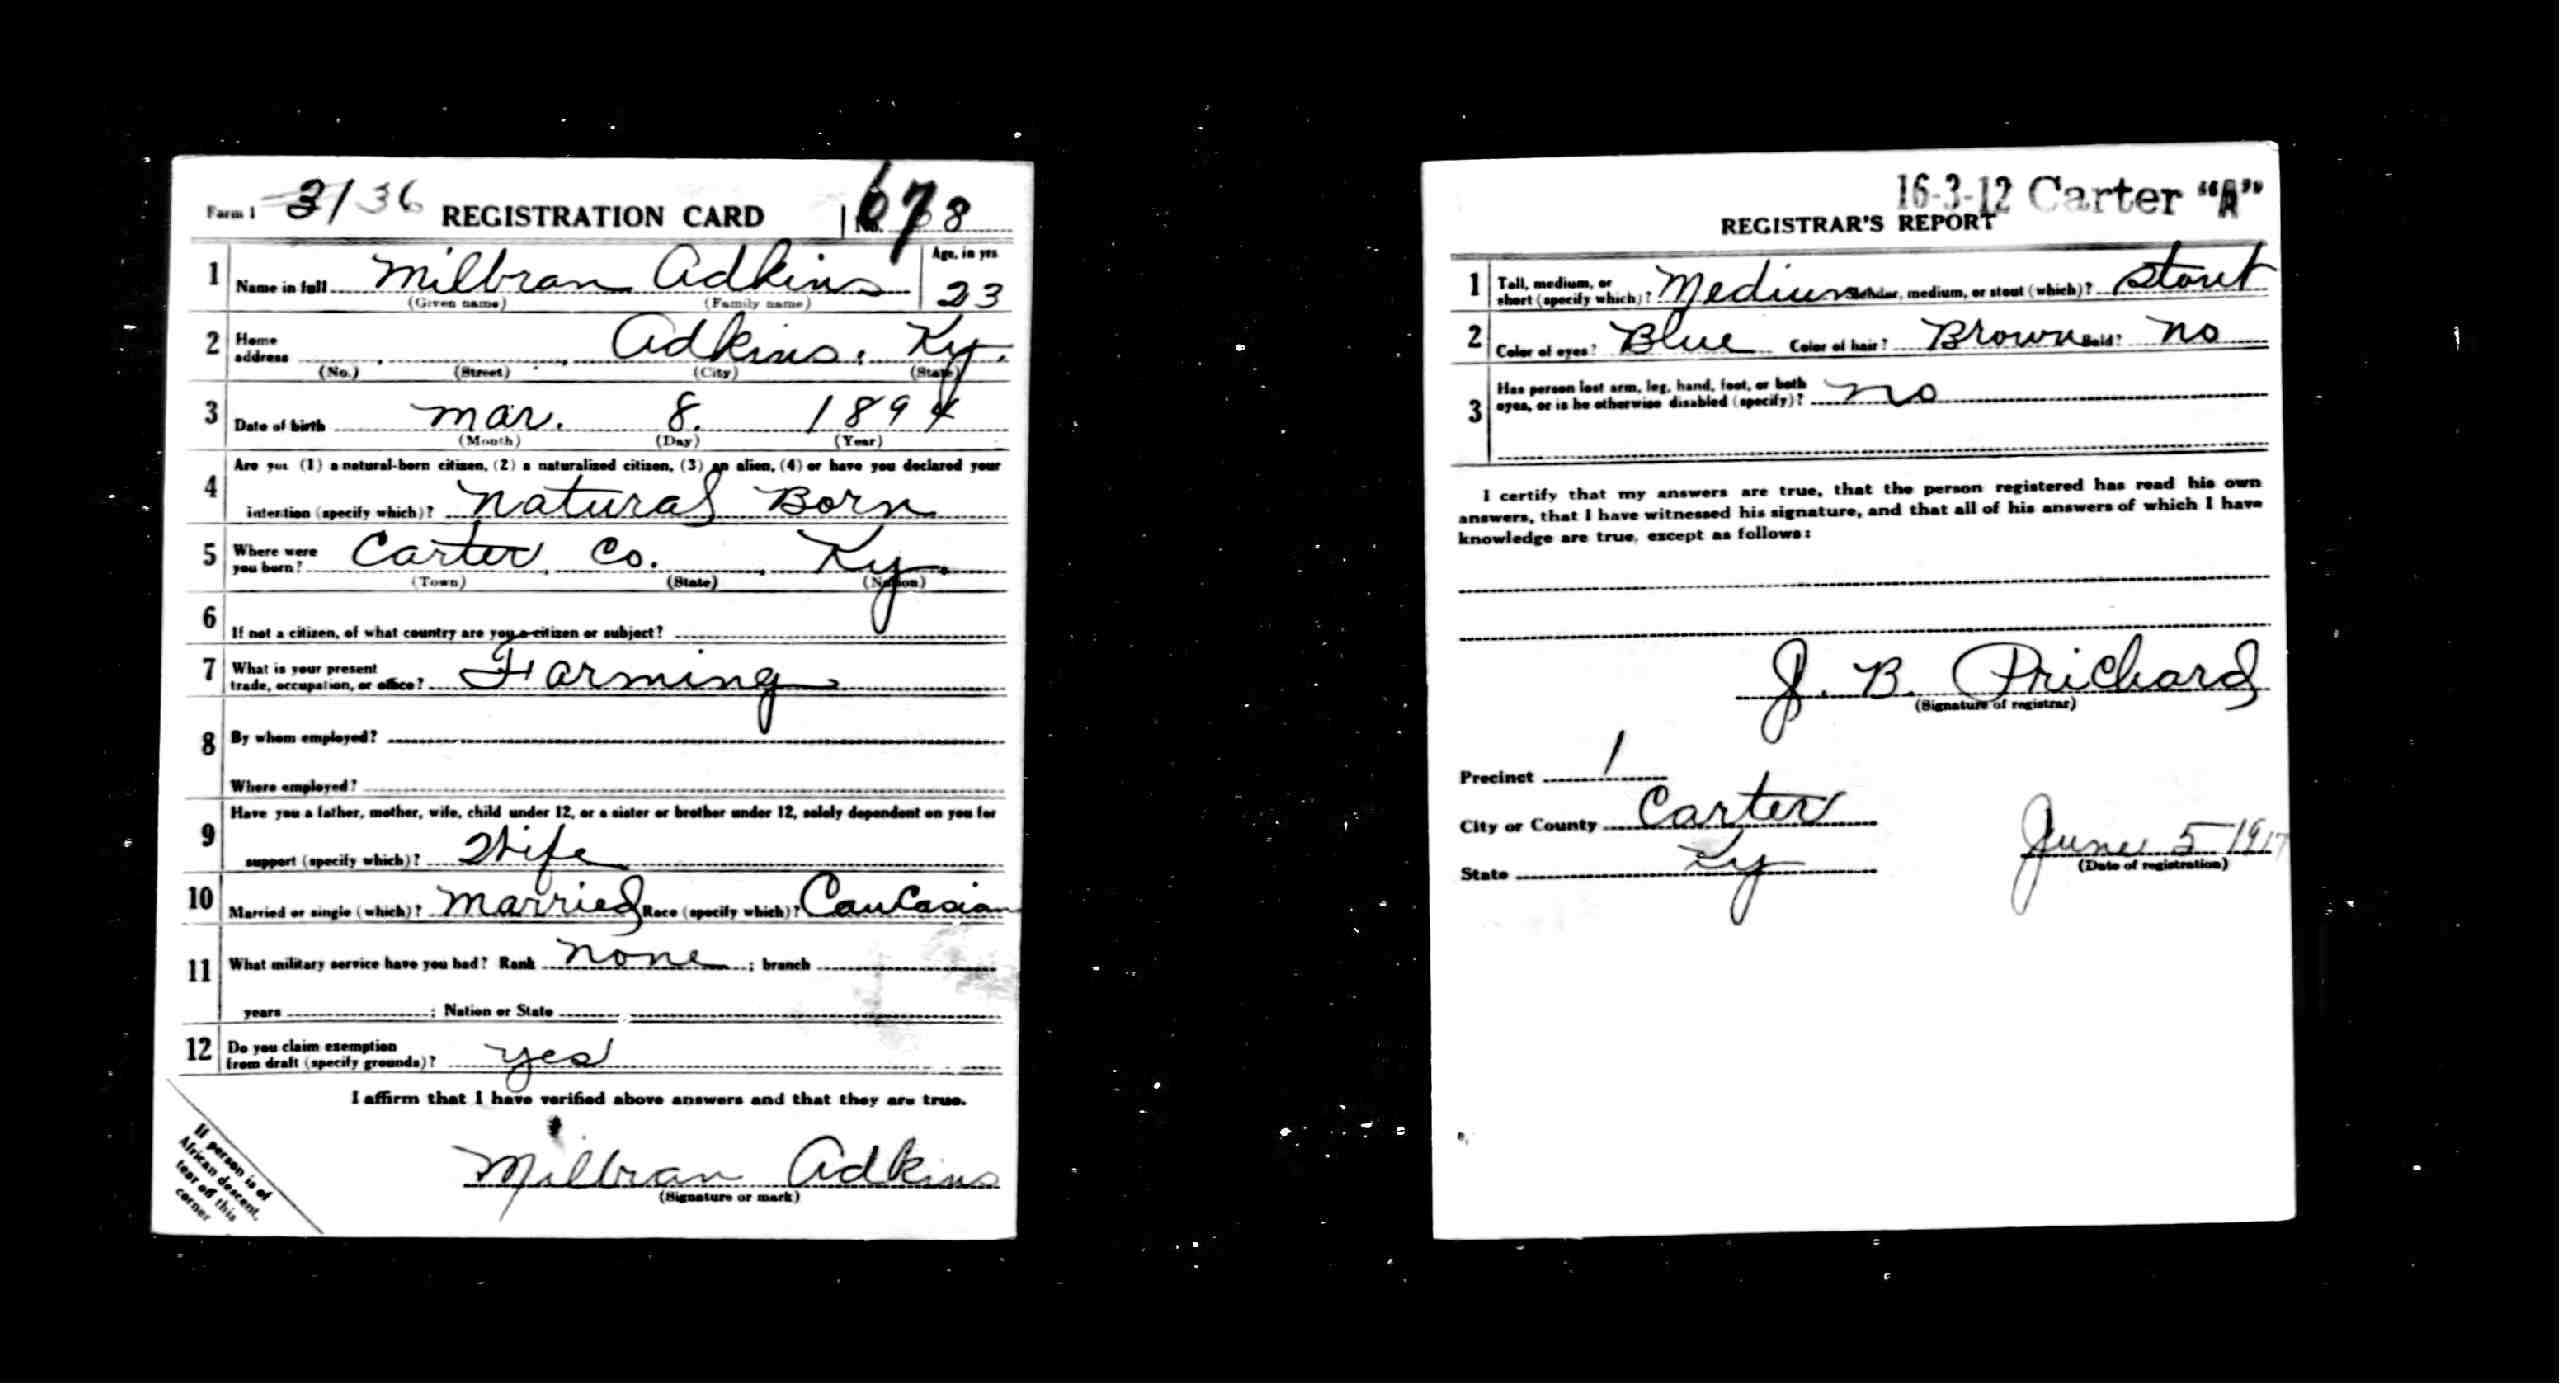 Form 1 3136 REGISTRATION CARD No. 678
1 Name in full Milbran Adkins Age, in yrs 23
(Given name) (Family name)
2 Home address Adkins, Ky.
(No.) (Street) (City) (State)
3 Date of birth Mar. 8. 1894
(Month) (Day) (Year)
4 Are you (1) a natural-born citizen, (2) a naturalized citizen, (3) an alien, (4) or have you declared your
intention (specify which)? Natural Born
5 Where were you born? Carter Co. Ky.
(Town) (State) (Nation)
6 If not a citizen, of what country are you a citizen or subject?
7 What is your present
trade, occupation, or office? Farming
8 By whom employed?
Where employed?
9 Have you a father, mother, wife, child under 12, or a sister or brother under 12, solely dependent on you for
support (specify which)? Wife
10 Married or single (which)? Married Race (specify which)? Caucasian
11 What military service have you had? Rank None ; branch
years ; Nation or State
12 Do you claim exemption
from draft (specify grounds)? Yes
I affirm that I have verified above answers and that they are true.
Milbran Adkins
(Signature or mark)
If person is of
African descent,
tear off this
corner
16-3-12 Carter "A"
REGISTRAR'S REPORT
1 Tall, medium, or
short (specify which)? Medium Slender, medium, or stout (which)? Stout
2 Color of eyes? Blue Color of hair? Brown Bald? No
3 Has person lost arm, leg, hand, foot, or both
eyes, or is he otherwise disabled (specify)? No
I certify that my answers are true, that the person registered has read his own
answers, that I have witnessed his signature, and that all of his answers of which I have
knowledge are true, except as follows:
J. B. Prichard
(Signature of registrar)
Precinct 1
City or County Carter
State Ky
June 5 1917
(Date of registration)